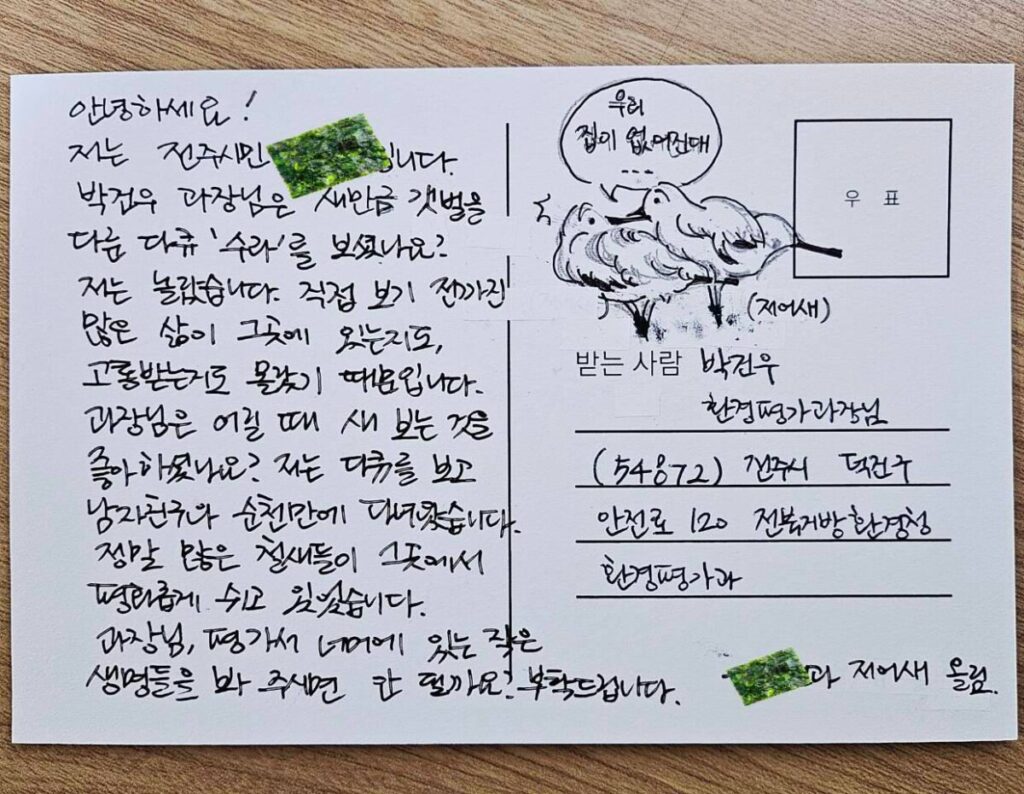 안녕하세요!
저는 전주시민 입니다.
박건우 과장님은 새만금 갯벌을
다룬 다큐 '수라'를 보셨나요?
저는 놀랐습니다. 직접 보기 전까진
많은 삶이 그곳에 있는지도,
고통받는지도 몰랐기 때문입니다.
과장님은 어릴 때 새 보는 것을
좋아하셨나요? 저는 다큐를 보고
남자친구와 순천만에 다녀왔습니다.
정말 많은 철새들이 그곳에서
평화롭게 쉬고 있었습니다.
과장님, 평가서 너머에 있는 작은
생명들을 봐 주시면 안 될까요? 부탁드립니다.
우리
집이 없어진대
....
우 표
(저어새)
받는 사람 박건우
환경평가과장님
(54872) 전주시 덕진구
안전로 120 전북지방환경청
환경평가과
과 저어새 올림.